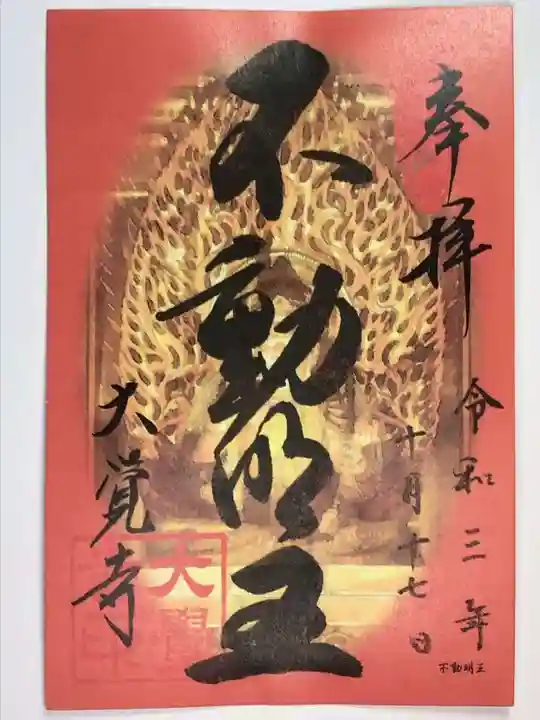 奉拝
令和三年
十月十七日
不動明王
大覚寺
大覚
不動明王